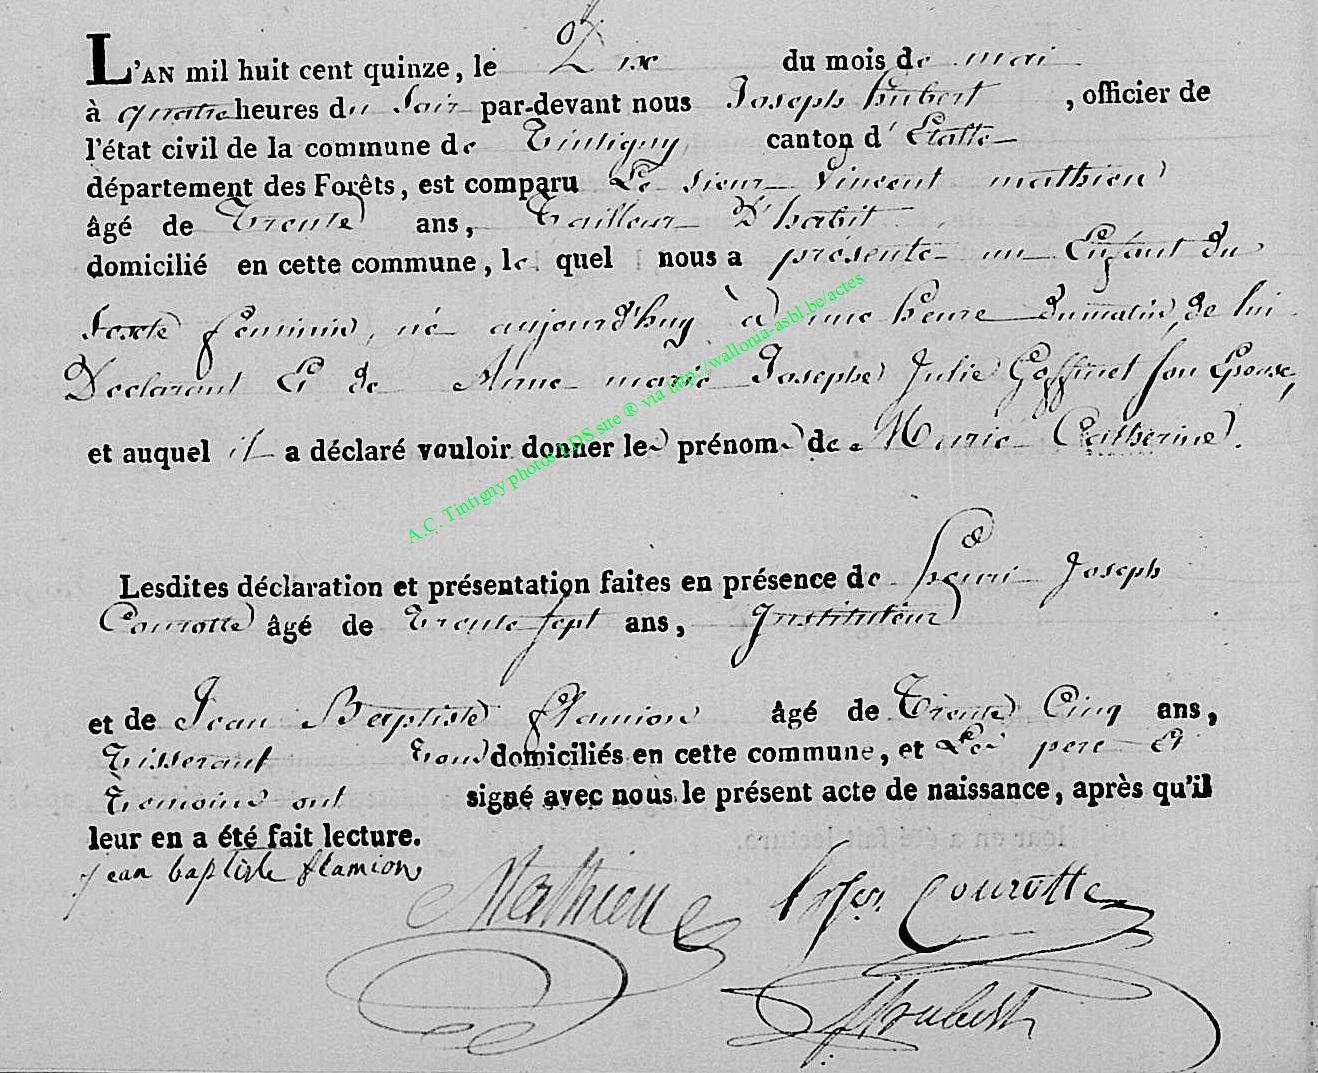 L'AN mil huit cent quinze, le Dix du mois de mai
à quatre heures du Soir par-devant nous Joseph hubert, officier de
l'état civil de la commune de Tintigny canton d'Etalle
département des Forêts, est comparu Le sieur Vincent mathieu
âgé de Trente ans, Tailleur D'habit
domicilié en cette commune, le quel nous a présenté un Enfant du
Sexte feminin, né aujourd'huy à une heure du matin, de lui
Déclarant Et de Anne marie Josephe Julie Goffinet son Epouse,
et auquel il a déclaré vouloir donner les prénoms de Marie Catherine.
Lesdites déclaration et présentation faites en présence de henri Joseph
Courotte âgé de Trente sept ans, Instituteur
et de Jean Baptiste flamion âgé de Trente Cinq ans,
Tisserant Tous domiciliés en cette commune, et Les pere Et
Temoins ont signé avec nous le présent acte de naissance, après qu'il
leur en a été fait lecture.
jean baptiste flamion Mathieu Courotte
Jhubert
A.C. Tintigny photos LDS site ® via http://wallonia-asbl.be/actes